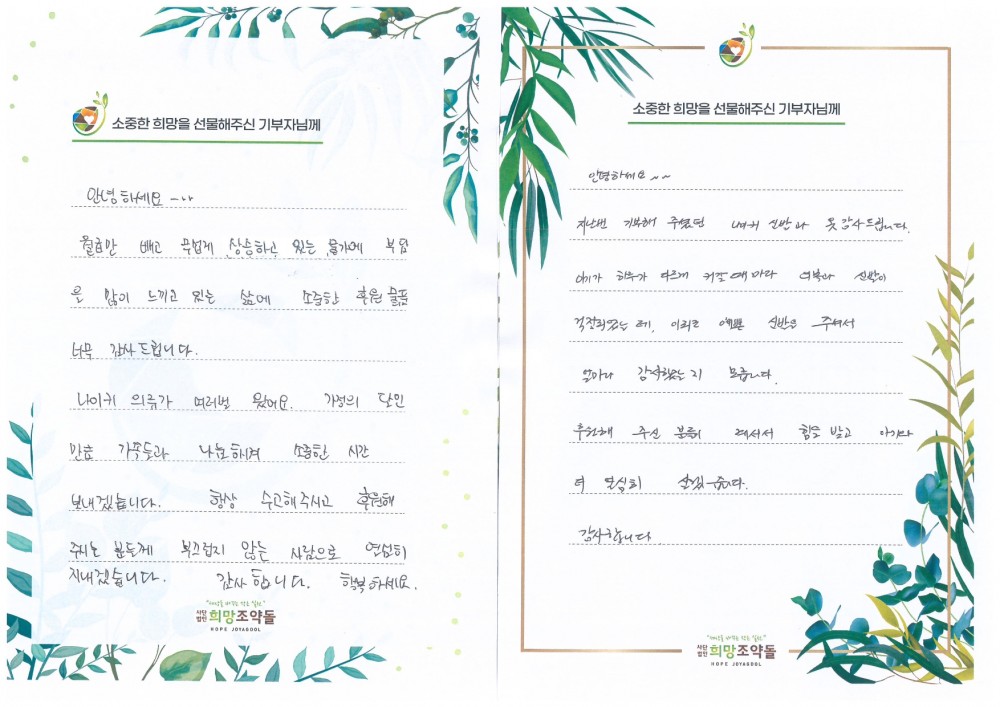 소중한 희망을 선물해주신 기부자님께
안녕하세요 ~..
월급만 빼고 무섭게 상승하고 있는 물가에 부담
을 많이 느끼고 있는 삶에 소중한 후원물품
너무 감사드립니다.
나이키 의류가 여러벌 왔어요. 가정의 달인
만큼 가족들과 나눔하며 소중한 시간
보내겠습니다. 항상 수고해주시고 후원해
주시는 분들께 부끄럽지 않는 사람으로 열심히
지내겠습니다. 감사합니다. 행복하세요.
"세상을 바꾸는 작은 실천"
사단법인 희망조약돌
HOPE JOYAGDOL
소중한 희망을 선물해주신 기부자님께
안녕하세요 ~~
지난번 기부해 주셨던 나이키 신발과 옷 감사드립니다.
아이가 하루가 다르게 커갈때마다 의복과 신발이
걱정되었는데, 이리로 예쁜 신발을 주셔서
얼마나 감사했는지 모릅니다.
후원해 주신 분들이 계셔서 힘을 받고 아이와
더 열심히 살겠습니다.
감사합니다
"세상을 바꾸는 작은 실천"
사단법인 희망조약돌
HOPE JOYAGDOL